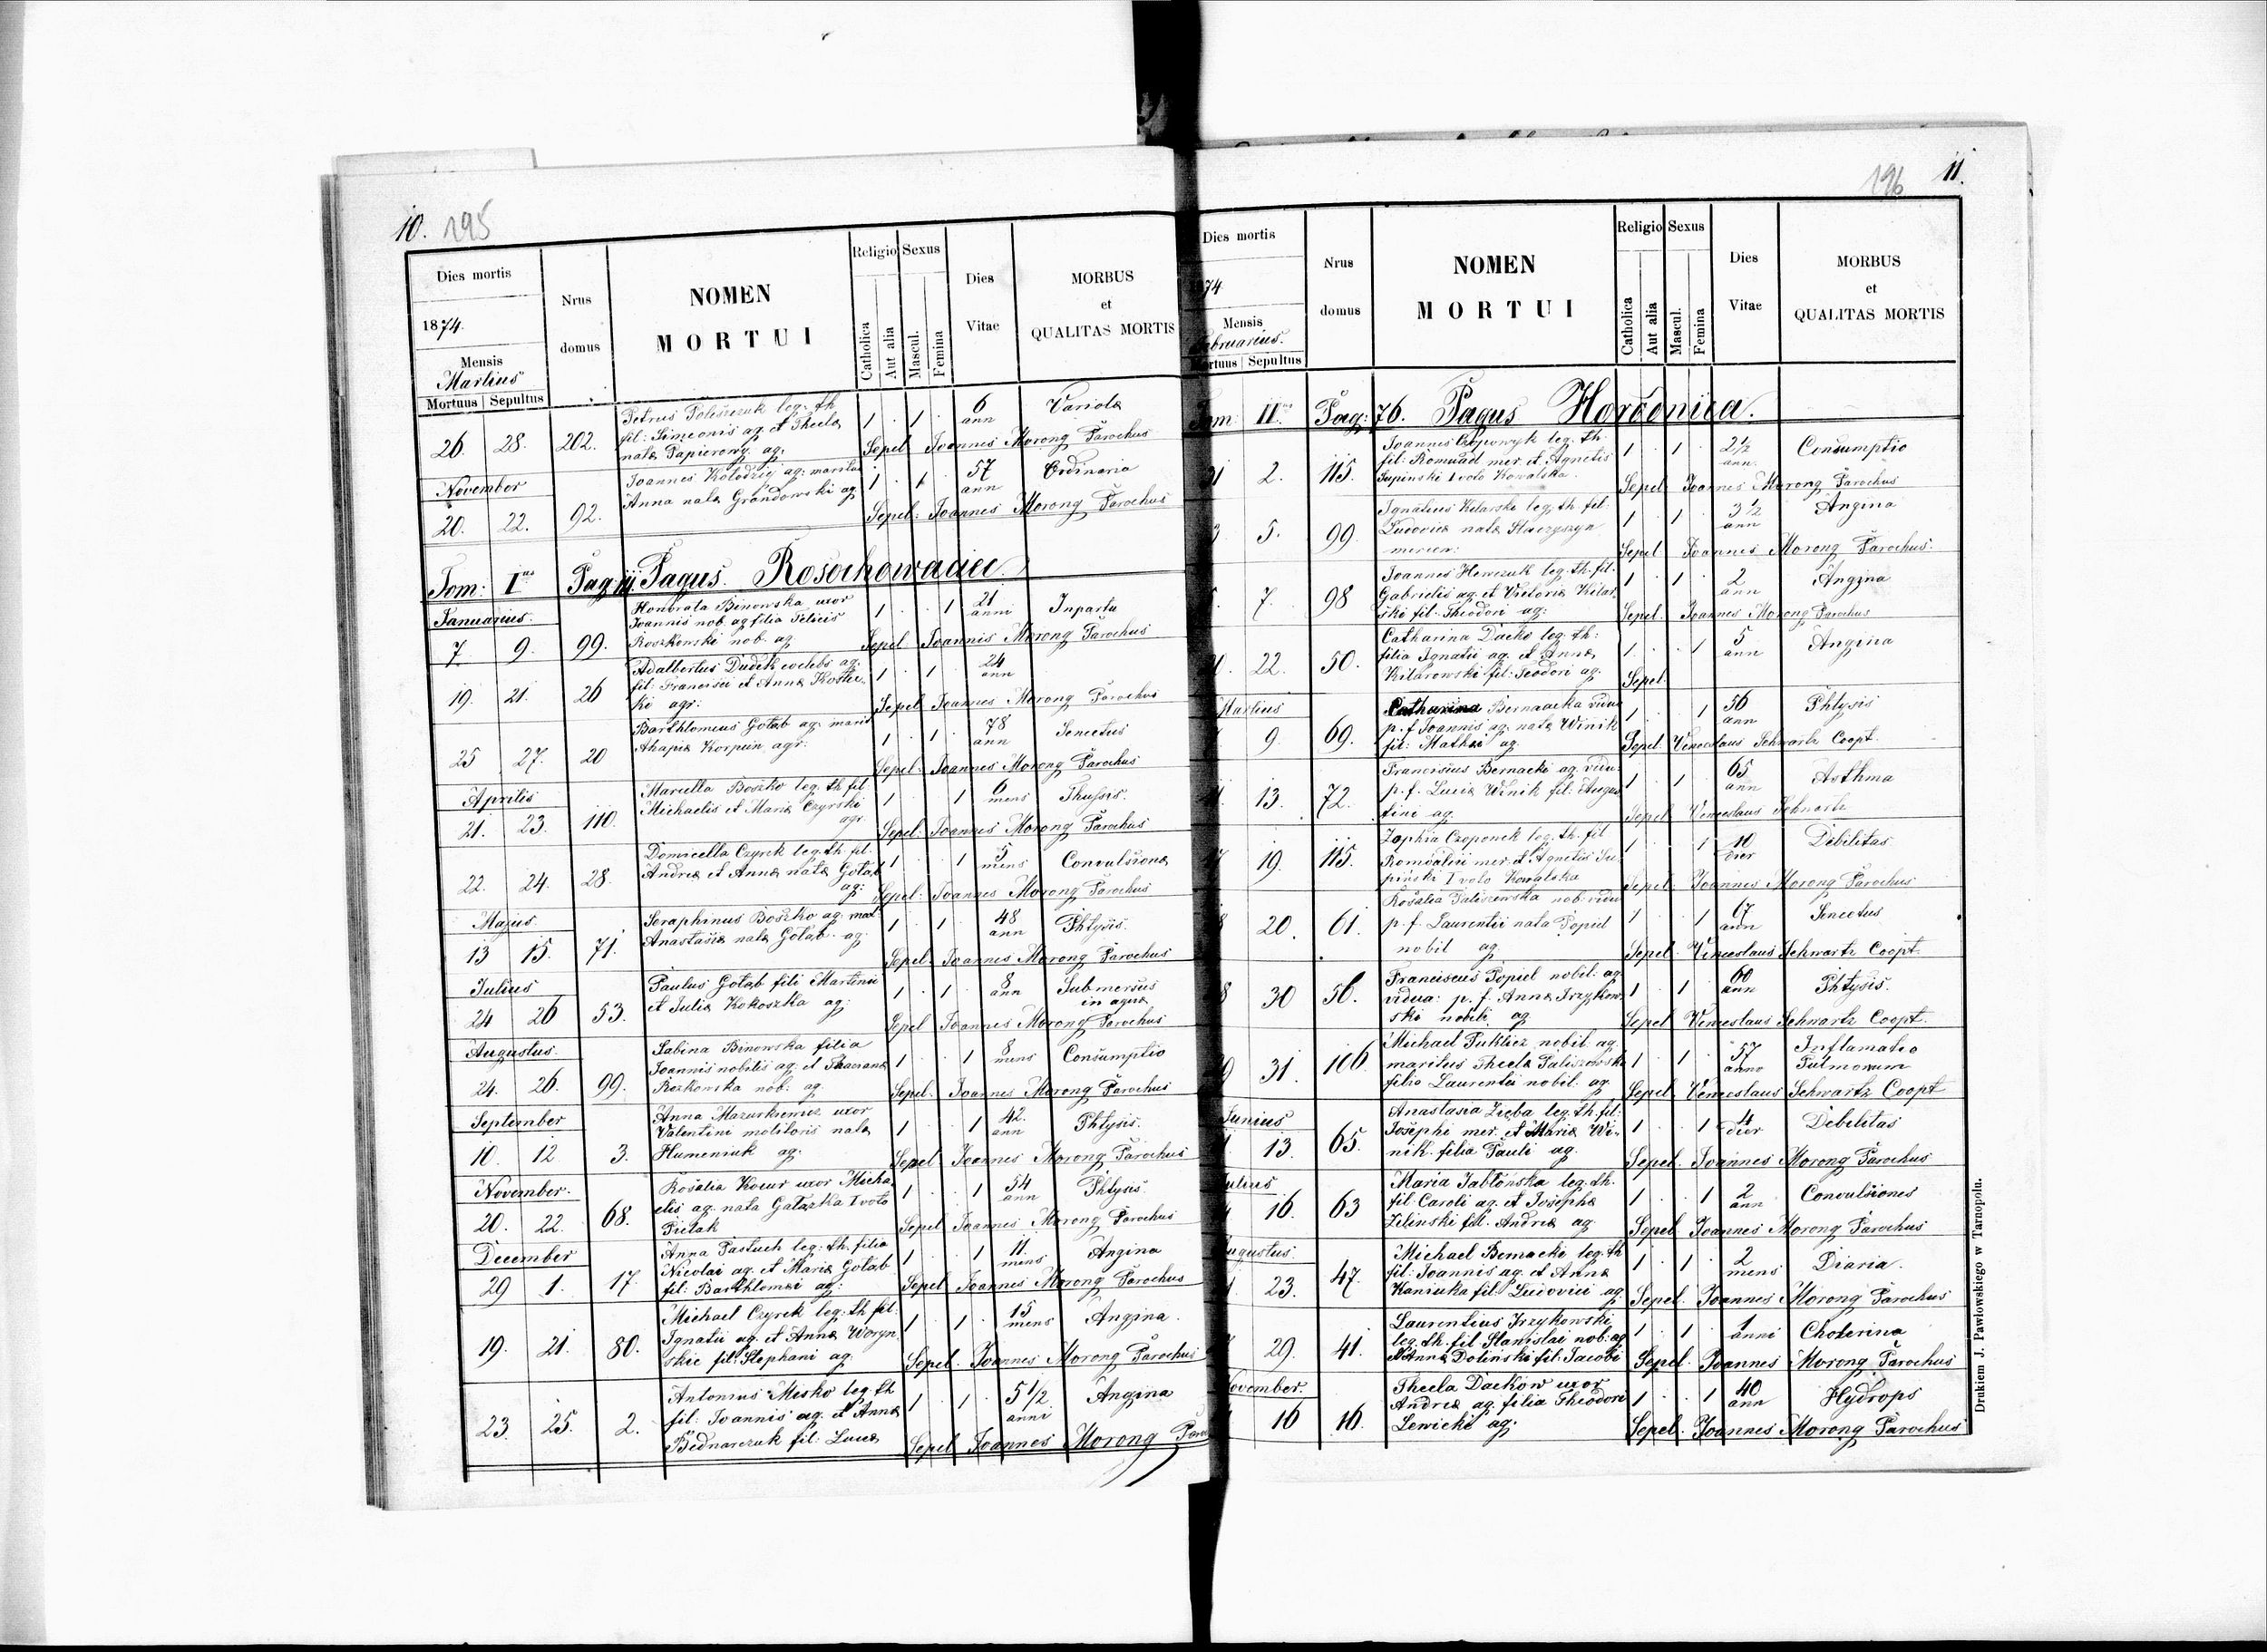 10. 195
Dies mortis
1874.
Mensis
Martius
Mortuus Sepultus
Nrus
domus
NOMEN
MORTUI
Religio Sexus
Catholica
Aut alia
Mascul.
Femina
Dies
Vitae
MORBUS
et
QUALITAS MORTIS
26. 28. 202.
Petrus Poleszczuk leg: th
fil: Simeonis ag. et Theclæ
natæ Papierowg ag.
1 1 6 ann Variola
Sepel Joannes Morong Parochus
November
20. 22. 92.
Joannes Kołodziej ag: maritus
Anna natæ Grandowski ag
1 1 57 ann Ordinaria
Sepel: Joannes Morong Parochus
Tom: Ius Pag Pagus. Rosochowaciec
Januarius.
7 9. 99.
Honorata Binowska uxor
Joannis nob. ag filia Felicis
Roszkowski nob. ag
1 1 21 anni Inpartu
Sepel Joannis Morong Parochus
19. 21. 26
Adalbertus Dudek coelebs ag.
fil: Francisci et Annæ
ki agr:
1 1 24 ann
Sepel Joannes Morong Parochus
25 27. 20
Barthlomeus Gołąb ag: marit
Ahapiæ Korpun agr:
1 1 78 ann Senectus
Sepel Joannes Morong Parochus
Aprilis
21. 23. 110.
Mariella Boszko leg. th fil
Michaelis et Mariæ Czyrski
agr.
1 1 6 mens Thussis.
Sepel: Joannes Morong Parochus
22. 24. 28.
Domicella Czyrek leg: th. fil.
Andreæ et Annæ natæ Gołąb
ag:
1 1 5 mens Convulsiones
Sepel: Joannes Morong Parochus
Majus
13 15. 71.
Seraphinus Boszko ag: mat
Anastasiæ natæ Gołąb ag.
1 1 48 ann Phtysis.
Sepel: Joannes Morong Parochus
Julius
24 26 53.
Paulus Gołąb fili Martini
et Juliæ Kokoszka ag:
1 1 8 ann Submersus
in aqua
Sepel Joannes Morong Parochus
Augustus.
24. 26. 99.
Sabina Binowska filia
Joannis nobilis ag: et
Roszkowska nob: ag.
1 1 8 mens Consumptio
Sepel. Joannes Morong Parochus
September
10. 12 3.
Anna Mazurkiewicz uxor
Valentini molitoris natæ
Humeniuk ag.
1 1 42. ann Phtysis.
Sepel Joannes Morong Parochus
November.
20. 22. 68.
Rosalia Kocur uxor Micha
elis ag. nata Gałązka I voto
Pielak
1 1 54 ann Phtysis
Sepel Joannes Morong Parochus
December
29 1. 17.
Anna Pastuch leg: th. filia
Nicolai ag. et Mariæ Gołąb
fil: Barthlomei ag:
1 1 11. mens Angina
Sepel Joannes Morong Parochus
19. 21. 80.
Michael Czyrek leg: th fil:
Ignatii ag. et Annæ Woryn
skie fil: Stephani ag.
1 1 15 mens Angina.
Sepel. Joannes Morong Parochus
23. 25. 2.
Antonius Misko leg. th
fil: Joannis ag. et Annæ
Bednarczuk fil: Lucæ
1 1 5 1/2 anni Angina
Sepel Joannes Morong
196 11.
Dies mortis
74
Mensis
bruarius.
ortuus Sepultus
Nrus
domus
NOMEN
MORTUI
Religio Sexus
Catholica
Aut alia
Mascul.
Femina
Dies
Vitae
MORBUS
et
QUALITAS MORTIS
Tom: II Pag: 76. Pagus Horodnica.
31 2. 115.
Joannes Czopowyk leg. th.
fil: Romuald mer. et Agnetis
Supinski I voto Kowalska.
1 1 2 1/2 ann. Consumptio
Sepel Joannes Morong Parochus
3 5. 99.
Ignatius Kitarski leg. th fil.
Ludovicæ natæ Staczyszyn
mercen:
1 1 3 1/2 ann Angina
Sepel Joannes Morong Parochus.
7. 98
Joannes Hewczuk leg. th. fil.
Gabrielis ag. et Victoriæ Kitar
ski fil: Theodori ag:
1 1 2 ann Angina
Sepel. Joannes Morong Parochus
22. 50.
Catharina Dacko leg. th:
filia Ignatii ag. et Annæ
Kitarowski fil: Teodori ag.
1 1 5 ann Angina
Sepel.
Martius
9. 69.
Catharina Bernacka vidua
p. f. Joannis ag. natæ Winik
fil: Mathei ag.
1 1 56 ann Phtysis
Sepel. Venceslaus Schwartz Coopt.
13. 72.
Franciscus Bernacki ag. vidu:
p. f. Luciæ Winik fil: Augus
tini ag.
1 1 65 ann Asthma
Sepel Venceslaus Schwartz
19. 115.
Zophia Czoponek leg. th. fil
mer. et Agnetis Su
piński I voto Kowalska
1 1 10 dier Debilitas
Sepel. Joannes Morong Parochus
20. 61.
Rosalia Paliszewska nob: vidu
p. f. Laurentii nata Popiel
nobil ag.
1 1 67 ann Senectus
Sepel. Venceslaus Schwartz Coopt.
30 56.
Franciscus Popiel nobil: ag
vidua: p. f. Annæ Irzykow
ski nobili ag
1 1 60 ann Phtysis.
Sepel Venceslaus Schwartz Coopt.
31. 106
Michael nobil ag.
maritus Theclæ Paliszowski
filia Laurentii nobil: ag.
1 1 57 anno Inflamatio
Pulmonum
Sepel Venceslaus Schwartz Coopt
Junius
13. 65.
Anastasia Zięba leg. th. fil:
Josephi mer. et Mariæ Wi-
nik filia Pauli ag.
1 1 4 dier Debilitas
Sepel Joannes Morong Parochus
Julius
16. 63
Maria Jabłońska leg: th.
fil: Caroli ag. et Josephæ
Zilinski fil. Andreæ ag.
1 1 2 ann Convulsiones
Sepel Joannes Morong Parochus
ugustus.
23. 47.
Michael Bernacki leg. th
fil: Joannis ag. et Annæ
Kaniuka fil: Ludovici ag.
1 1 2 mens Diaria.
Sepel. Joannes Morong Parochus
29. 41.
Laurentius Irzykowski
leg. th. fil Stanislai nob: ag
et Annæ Dolinski fil: Jacobi
1 1 1 anni Cholerina
Sepel Joannes Morong Parochus
ovember.
16 16.
Thecla Dackow uxor
Andreæ ag. filia Theodori
Lewicki ag.
1 1 40 ann Hydrops
Sepel. Joannes Morong Parochus
Drukiem J. Pawłowskiego w Tarnopolu.